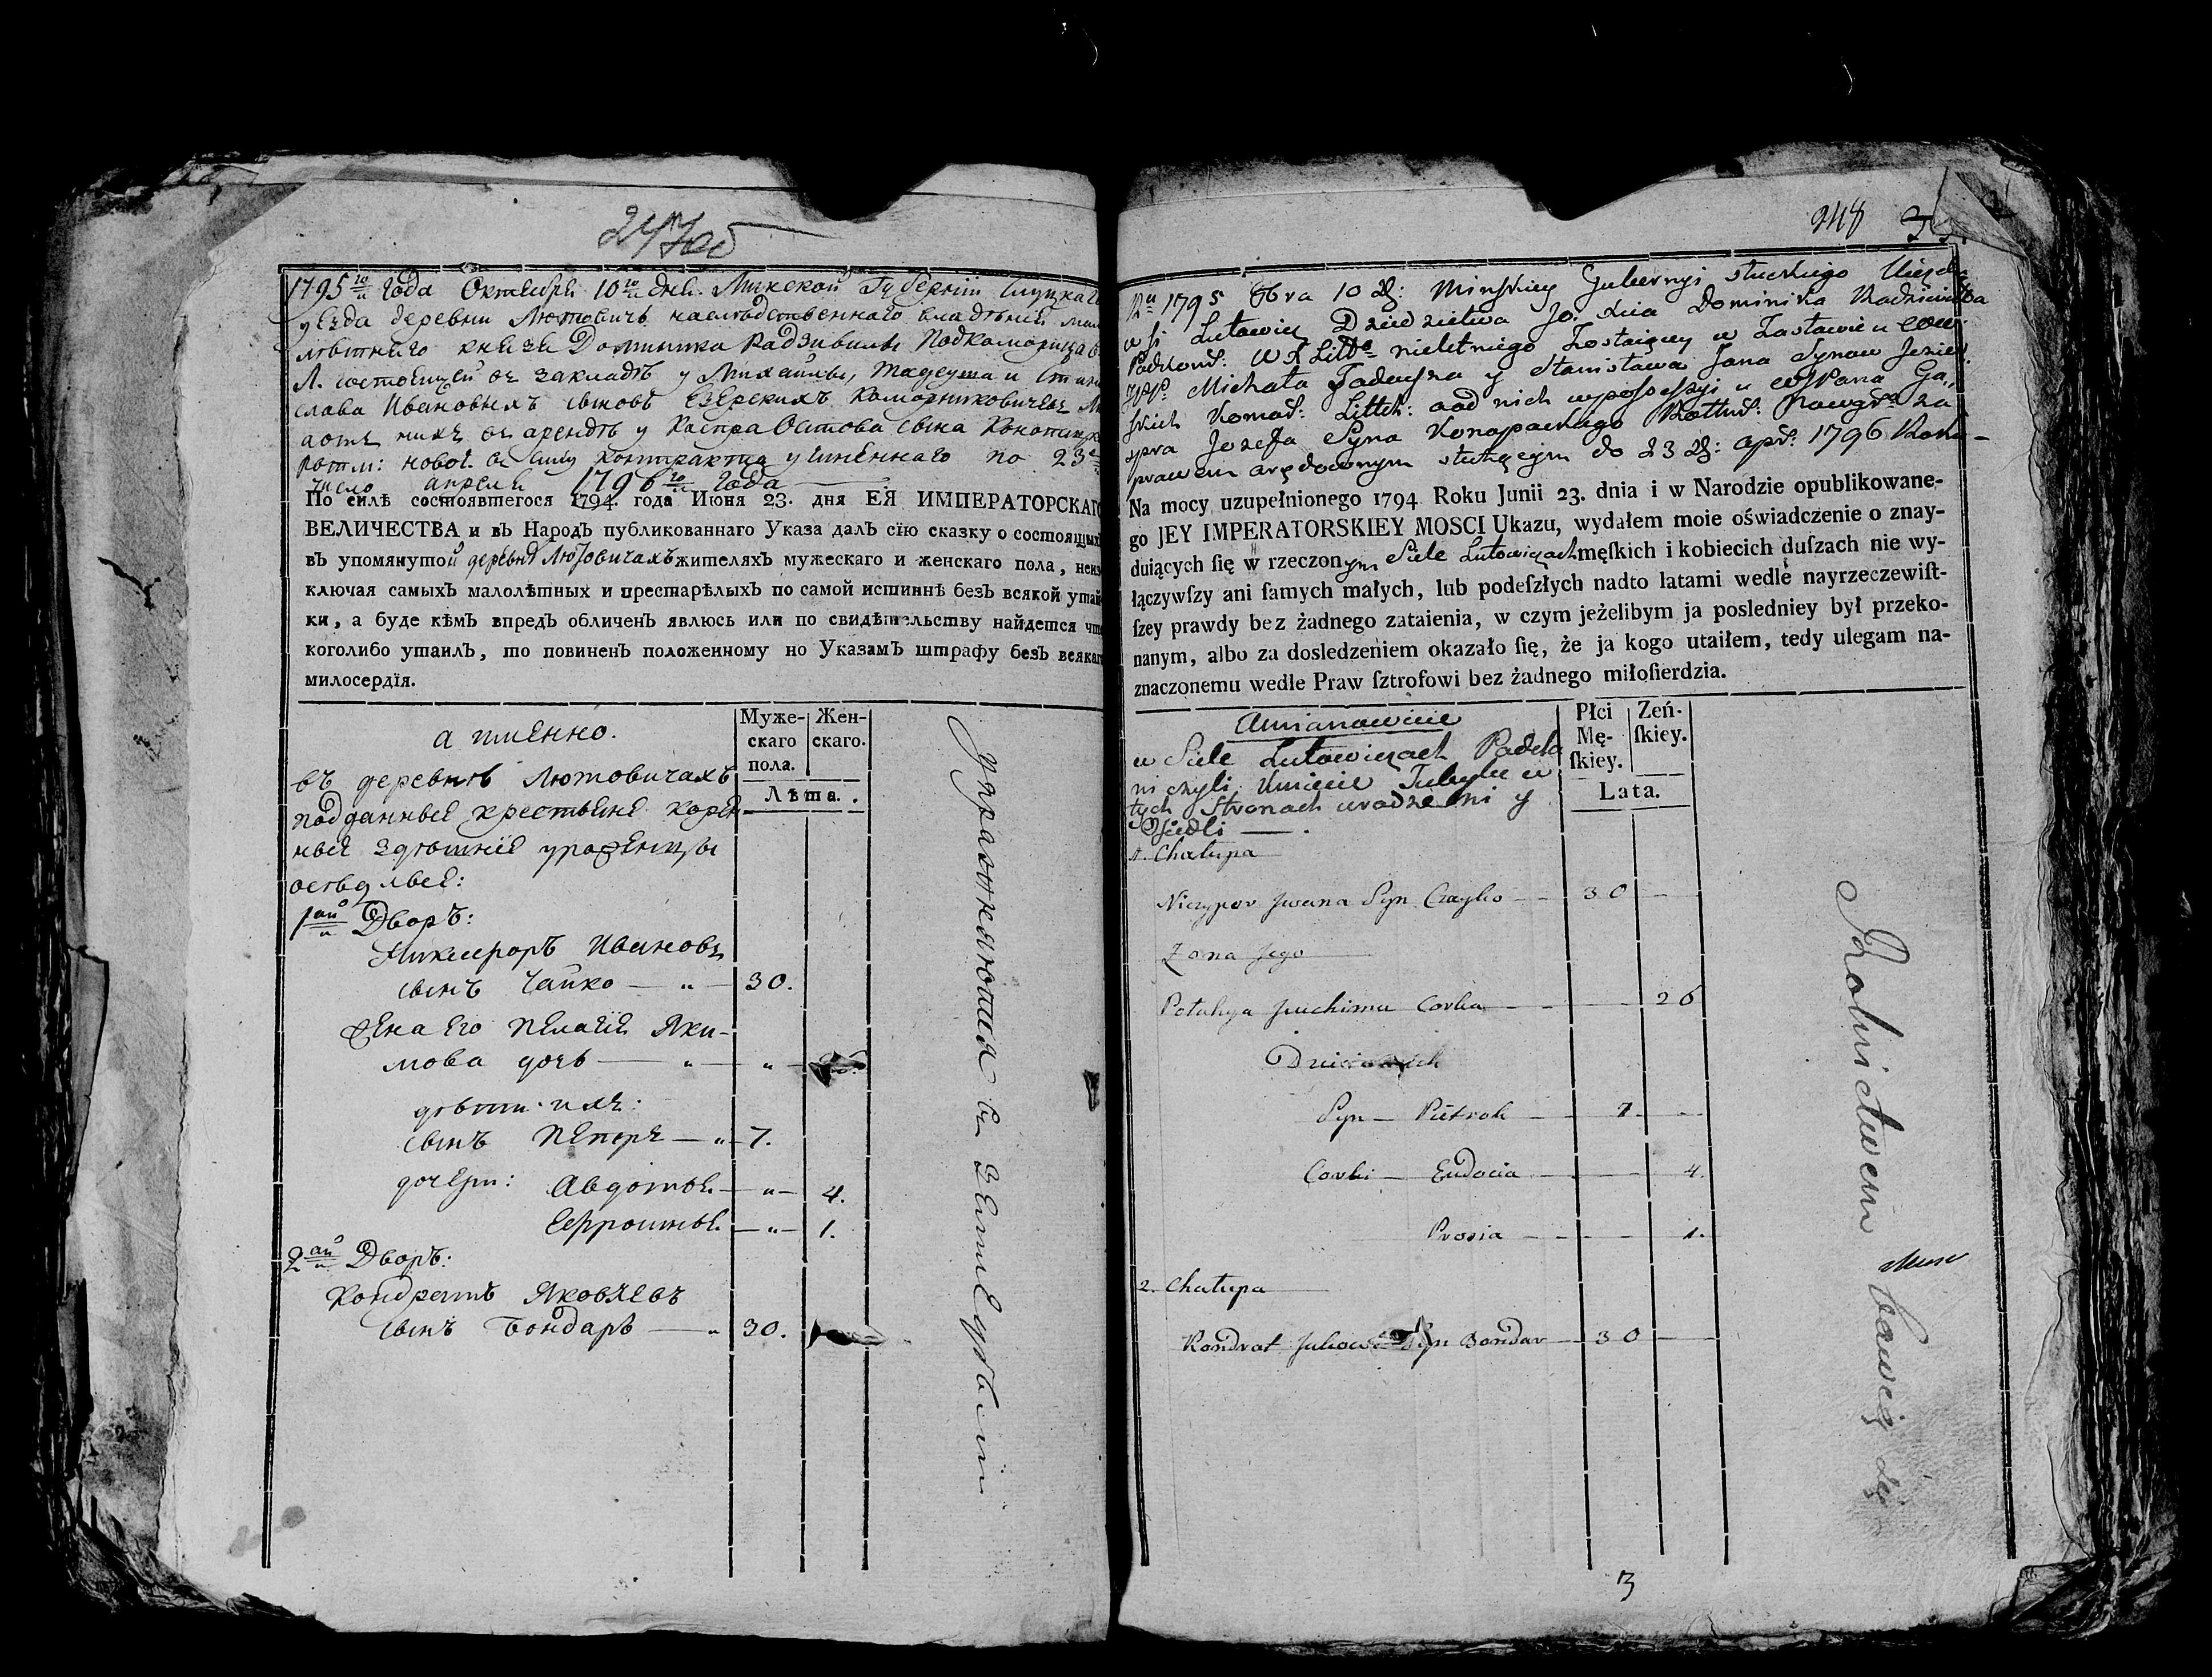 247об
1795го Года Октебря 10го дня. Минской Губернии Слуцкаго
уезда деревни Лютовичъ наследственнаго владения мало
летнего князя Доминика Радзивила Подкоморица В.
Л. состоящей въ закладе у Михайлы, Тадеуша и Стани
слава Ивановыхъ сыновъ Езерскихъ Каморниковичевъ
а отъ нихъ въ аренде у Каспра Осипова сына Конопацк
ротм: новог. въ силу контракта учиненнаго по 23е
число апреля 1796го Года
По силѣ состоявшегося 1794. года Июня 23. дня ЕЯ ИМПЕРАТОРСКАГО
ВЕЛИЧЕСТВА и въ Народъ публикованнаго Указа далъ сїю сказку о состоящихъ
въ упомянутой деревне Лютовичахъ жителяхъ мужескаго и женскаго пола, неиз
ключая самыхъ малолѣтныхъ и престарѣлыхъ по самой истиннѣ безъ всякой утай
ки, а буде кѣмъ впредъ обличенъ явлюсь или по свидѣтельству найдется что
коголибо утаилъ, то повиненъ положенному по Указамъ штрафу безъ всякаго
милосердїя.
а именно.
Муже-
скаго
пола.
Жен-
скаго.
Лѣта.
въ деревне Лютовичахъ
подданные крестьяне корен
ные здешние уроженцы
оседлые:
1ый Дворъ:
Никифоръ Ивановъ
сынъ Чайко — " — 30.
Жена его Пелагея Яки-
мова дочь — " — " —
дети ихъ:
сынъ Петръ — " — 7.
дочери: Авдотья — " — 4.
Ефросинья — " — 1.
2ый Дворъ:
Кондратъ Яковлевъ
сынъ Бондарь — " 30.
упражняются въ земледелии
248
Ru 1795 8bra 10 D: Minskiey Gubernyi Słuckiego Uiezdu
wsi Lutowicz Dziedzictwa Jo. Xcia Dominika Radziwiłła
Podkom: W X Litto nieletniego Zostaiącey w Zastawie u WW:
JPP: Michała Tadeusza y Stanisława Jana Synow Jezier
skich Komor: Littch: a od nich w possessyi u WJPana Ga,,
spra Jozefa Syna Konopackiego Rottm: Nowgr: za
prawem arędownym służącym do 23 D: apr: 1796 Roku —
Na mocy uzupełnionego 1794 Roku Junii 23. dnia i w Narodzie opublikowane-
go JEY IMPERATORSKIEY MOSCI Ukazu, wydałem moie oświadczenie o znay-
duiących ſię w rzeczonym Siele Lutowiczach męſkich i kobiecich duſzach nie wy-
łączywſzy ani ſamych małych, lub podeſzłych nadto latami wedle nayrzeczewiſt-
ſzey prawdy bez żadnego zataienia, w czym jeżelibym ja posledniey był przeko-
nanym, albo za dosledzeniem okazało ſię, że ja kogo utaiłem, tedy ulegam na-
znaczonemu wedle Praw ſztrofowi bez żadnego miłoſierdzia.
Płci
Mę-
ſkiey.
Zeń-
ſkiey.
Lata.
w Siele Lutowiczach Podda
ni czyli
tych Stronach urodzeni y
Osiedli —
1. Chałupa
Niczypor Jwana Syn Czayko — 30 —
Zona Jego
Połahya Juchima Corka — — 26
Dzieci ich
Syn — Piётrok — 7 —
Corki — Eudocia — — 4.
Prosia — — 1.
2. Chałupa
Kondrat Jakowa Syn Bondar — 30 —
Rolnictwem bawią się
3